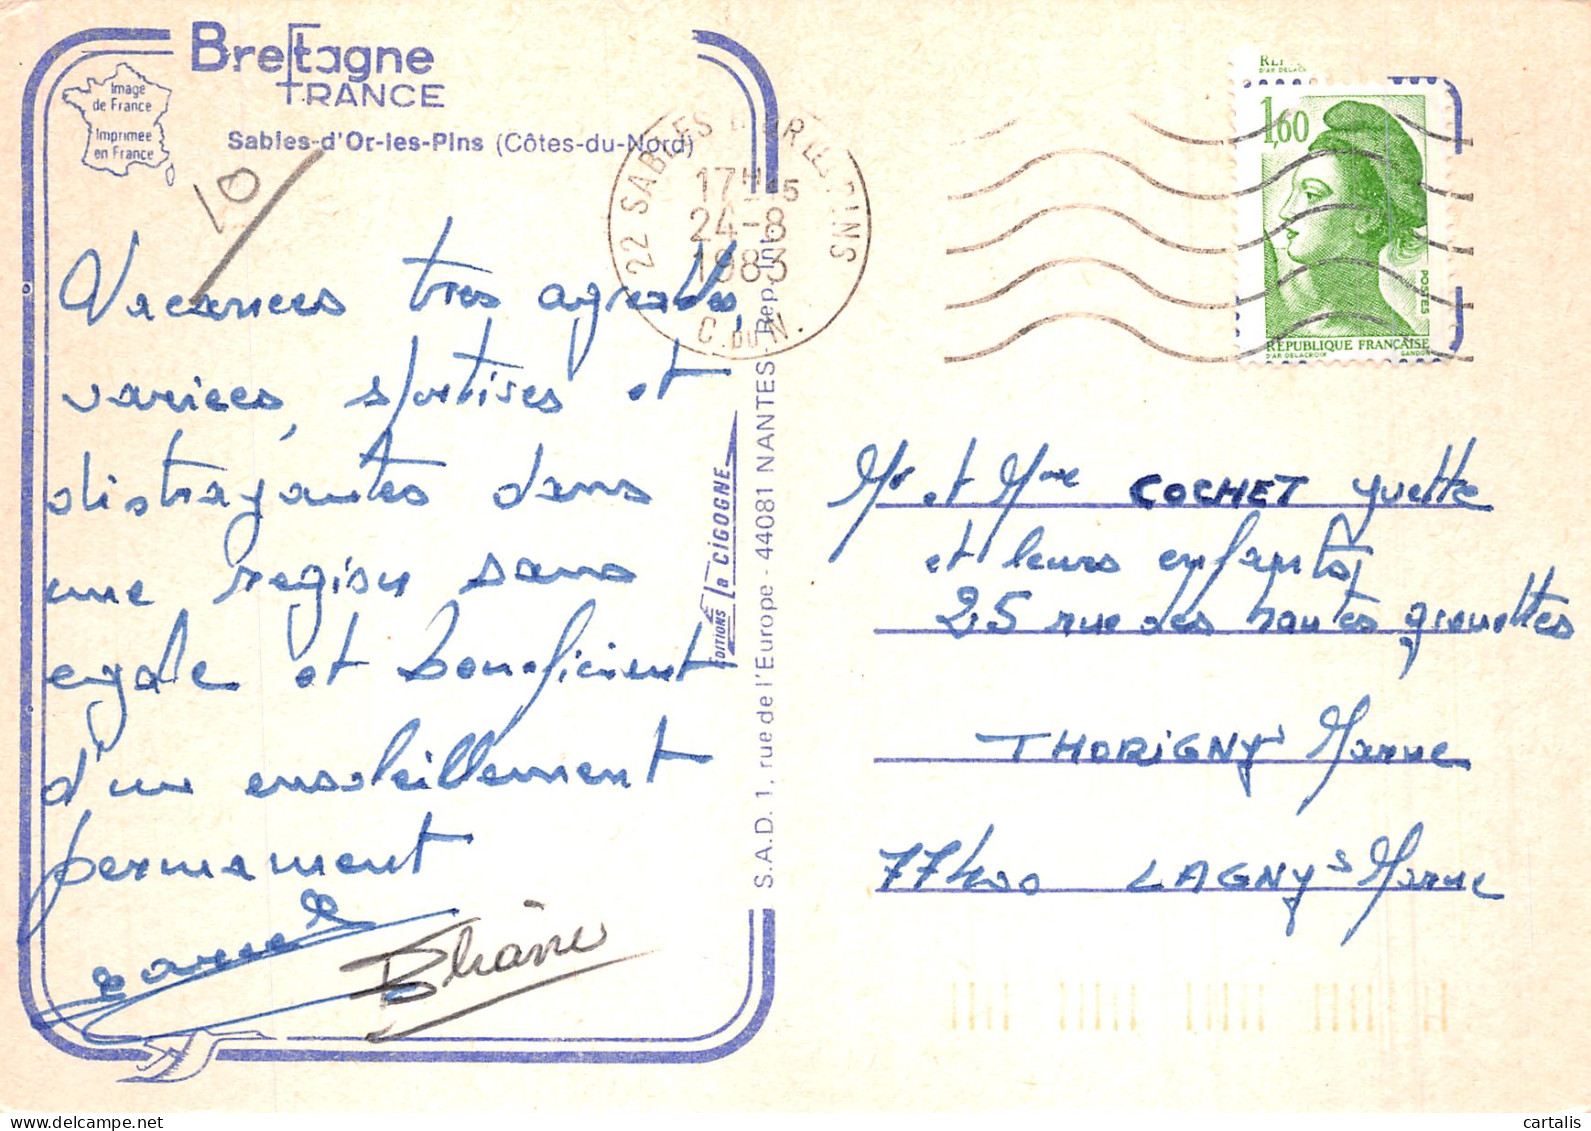 Bretagne
FRANCE
Image
de France
Imprimée
en France
Sables-d'Or-les-Pins (Côtes-du-Nord)
10
Vacances tres agreables,
variees, sportives et
distrayantes dans
une region sans
egale et beneficient
d'un ensoleillement
permanent
EDITIONS la CIGOGNE
S.A.D. 1, rue de l'Europe - 44081 NANTES Rep. Int.
22 SABLES D'OR LES PINS
17H15
24-8
1983
C. DU N.
D'AP. DELACROIX
1,60
POSTES
RÉPUBLIQUE FRANÇAISE
D'AP. DELACROIX GANDON
Mr et Mme COCHET Yvette
et leurs enfants,
25 rue des hautes grouettes
THORIGNY s/ Marne
77400 LAGNY s Marne